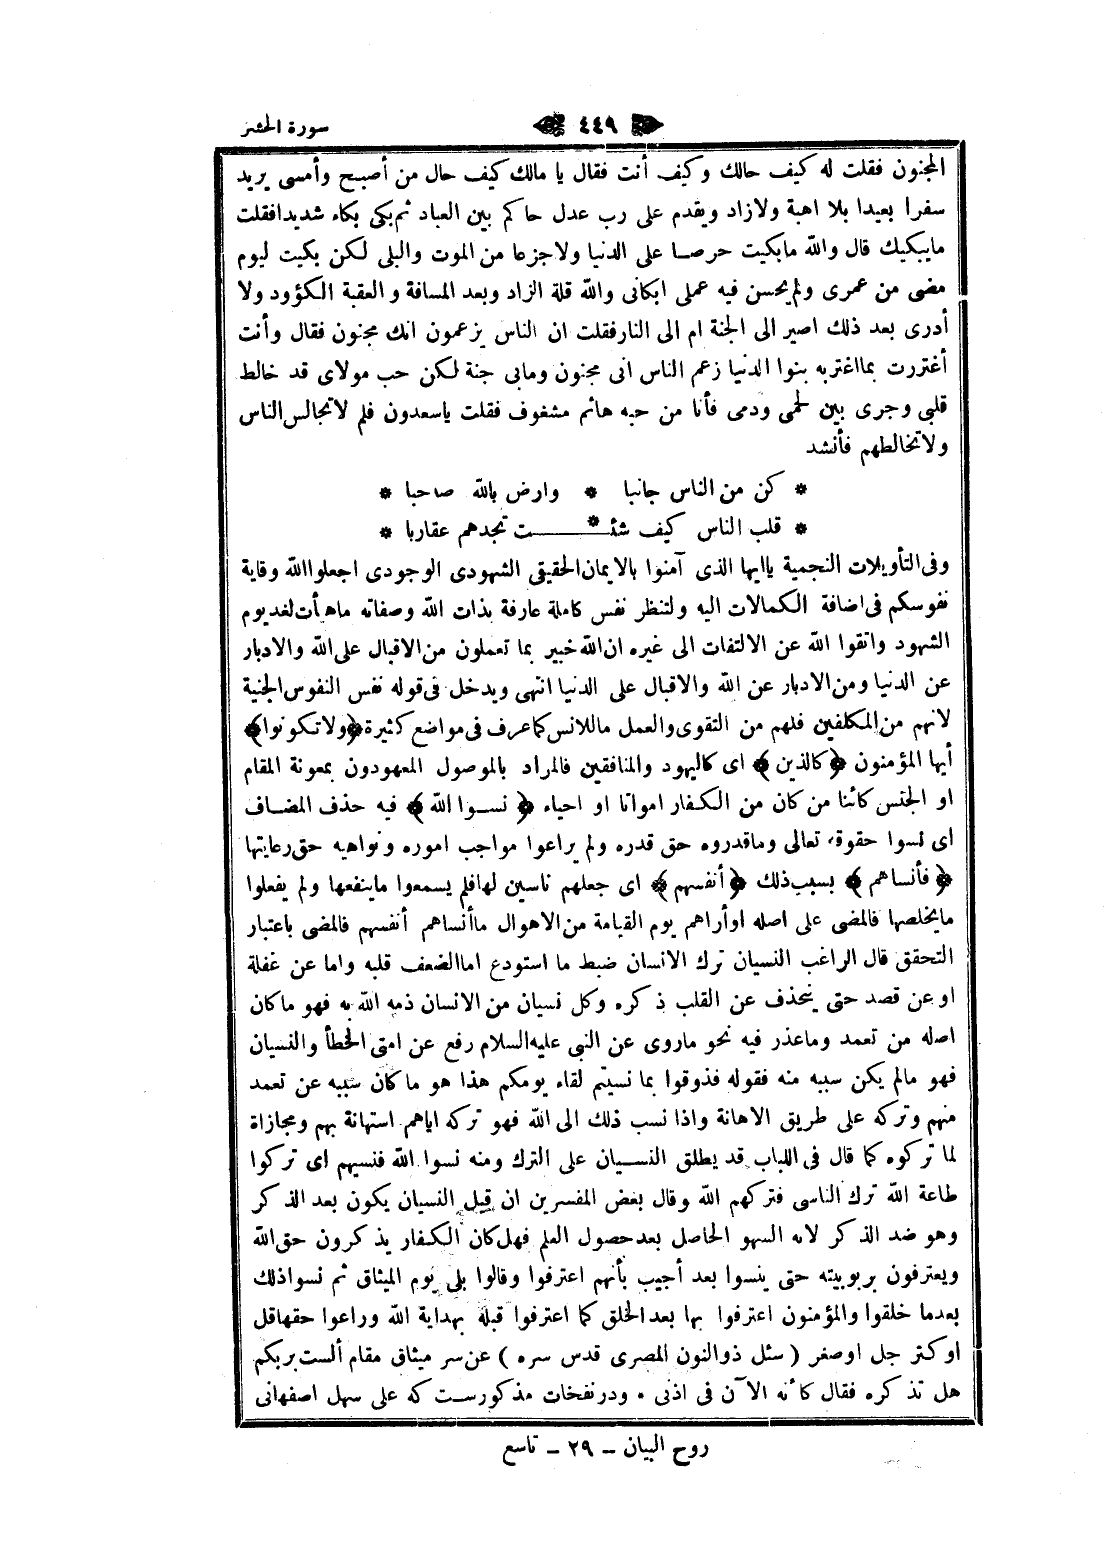 سورة الحشر
٤٤٩
المجنون فقلت له كيف حالك وكيف أنت فقال يا مالك كيف حال من أصبح وأمسى يريد
سفرا بعيدا بلا اهبة ولازاد ويقدم على رب عدل حاكم بين العباد ثم بكى بكاء شديدا فقلت
مايبكيك قال والله مابكيت حرصا على الدنيا ولاجزعا من الموت والبلى لكن بكيت ليوم
مضى من عمرى ولم يحسن فيه عملى ابكانى والله قلة الزاد وبعد المسافة والعقبة الكؤود ولا
أدرى بعد ذلك اصير الى الجنة ام الى النار فقلت ان الناس يزعمون انك مجنون فقال وأنت
أغتررت بمااغتربه بنوا الدنيا زعم الناس انى مجنون ومابى جنة لكن حب مولاى قد خالط
قلبى وجرى بين لحمى ودمى فأنا من حبه هائم مشغوف فقلت ياسعدون فلم لاتجالس الناس
ولاتخالطهم فأنشد
* كن من الناس جانبا * وارض بالله صاحبا *
* قلب الناس كيف شئـــت * تجدهم عقاربا *
وفى التأويلات النجمية ياايها الذى آمنوا بالايمان الحقيقى الشهودى الوجودى اجعلوا الله وقاية
نفوسكم فى اضافة الكمالات اليه ولتنظر نفس كاملة عارفة بذات الله وصفاته ماهيأت لغد يوم
الشهود واتقوا الله عن الالتفات الى غيره ان الله خبير بما تعملون من الاقبال على الله والادبار
عن الدنيا ومن الادبار عن الله والاقبال على الدنيا انتهى ويدخل فى قوله نفس النفوس الجنية
لانهم من المكلفين فلهم من التقوى والعمل ماللانس كما عرف فى مواضع كثيرة ﴿ولاتكونوا﴾
أيها المؤمنون ﴿كالذين﴾ اى كاليهود والمنافقين فالمراد بالموصول المعهودون بمعونة المقام
او الجنس كائنا من كان من الكفار امواتا او احياء ﴿نسوا الله﴾ فيه حذف المضاف
اى نسوا حقوقه تعالى وماقدروه حق قدره ولم يراعوا مواجب اموره ونواهيه حق رعايتها
﴿فأنساهم﴾ بسبب ذلك ﴿أنفسهم﴾ اى جعلهم ناسين لها فلم يسمعوا ماينفعها ولم يفعلوا
مايخلصها فالمضى على اصله اوأراهم يوم القيامة من الاهوال ماأنساهم أنفسهم فالمضى باعتبار
التحقق قال الراغب النسيان ترك الانسان ضبط ما استودع اما لضعف قلبه واما عن غفلة
او عن قصد حتى ينحذف عن القلب ذكره وكل نسيان من الانسان ذمه الله به فهو ماكان
اصله من تعمد وماعذر فيه نحو ماروى عن النبى عليه السلام رفع عن امتى الخطأ والنسيان
فهو مالم يكن سببه منه فقوله فذوقوا بما نسيتم لقاء يومكم هذا هو ماكان سببه عن تعمد
منهم وتركه على طريق الاهانة واذا نسب ذلك الى الله فهو تركه اياهم استهانة بهم ومجازاة
لما تركوه كما قال فى اللباب قد يطلق النسيان على الترك ومنه نسوا الله فنسيهم اى تركوا
طاعة الله ترك الناسى فتركهم الله وقال بعض المفسرين ان قيل النسيان يكون بعد الذكر
وهو ضد الذكر لانه السهو الحاصل بعد حصول العلم فهل كان الكفار يذكرون حق الله
ويعترفون بربوبيته حتى ينسوا بعد أجيب بأنهم اعترفوا وقالوا بلى يوم الميثاق ثم نسوا ذلك
بعدما خلقوا والمؤمنون اعترفوا بها بعد الخلق كما اعترفوا قبله بهداية الله وراعوا حقها قل
اوكثر جل اوصغر (سئل ذوالنون المصرى قدس سره) عن سر ميثاق مقام ألست بربكم
هل تذكره فقال كأنه الآن فى اذنى • ودرنفحات مذكورست كه على سهل اصفهانى
روح البيان – ٢٩ – تاسع